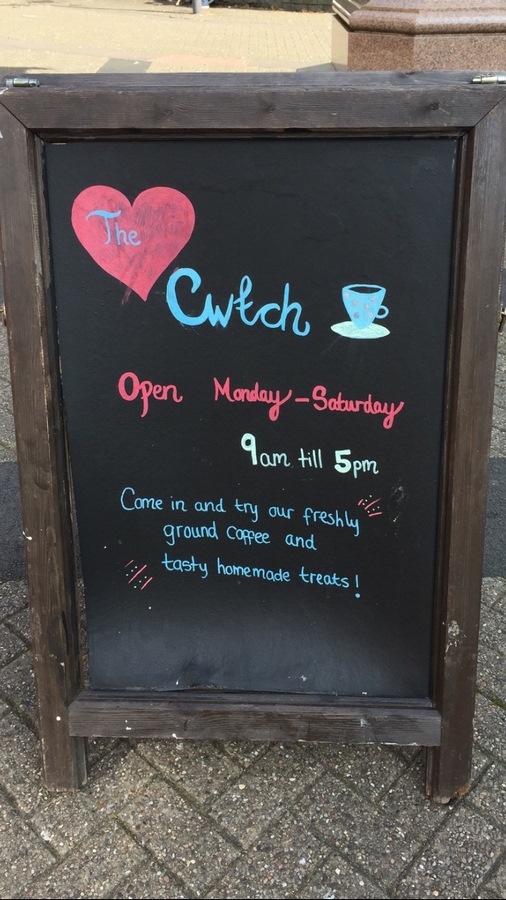 The
Cwtch
Open Monday-Saturday
9am till 5pm
Come in and try our freshly
ground coffee and
tasty homemade treats!